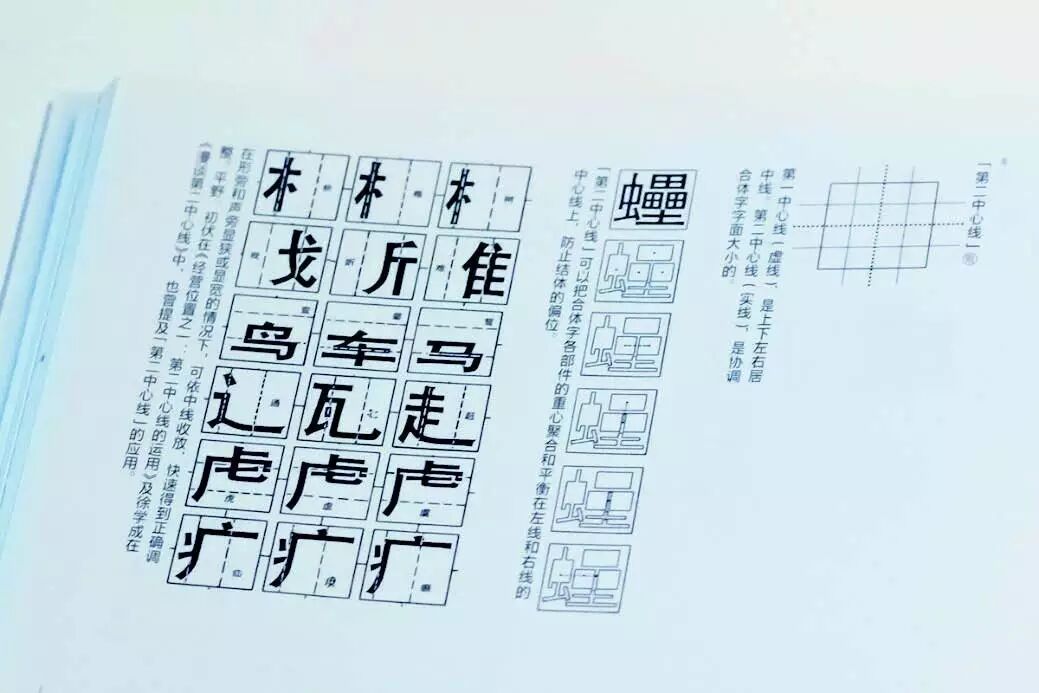 「第二中心线」
第一中心线(虚线),是上下左右居
中线。第二中心线(实线),是协调
合体字字面大小的。
「第二中心线」可以把合体字各部件的重心聚合和平衡在左线和右线的
中心线上,防止结体的偏位。
木 木 木
戈 斤 隹
视 听 难
鸟 车 马
辶 瓦 走
通 赶
虍 虍 虍
虎 虚 虞
疒 疒 疒
在形旁和声旁显狭或显宽的情况下,可依中线收放,快速得到正确调
整。平野、初伏在《经营位置之一:第二中心线的运用》及徐学成在
《漫谈第二中心线》中,也曾提及「第二中心线」的应用。